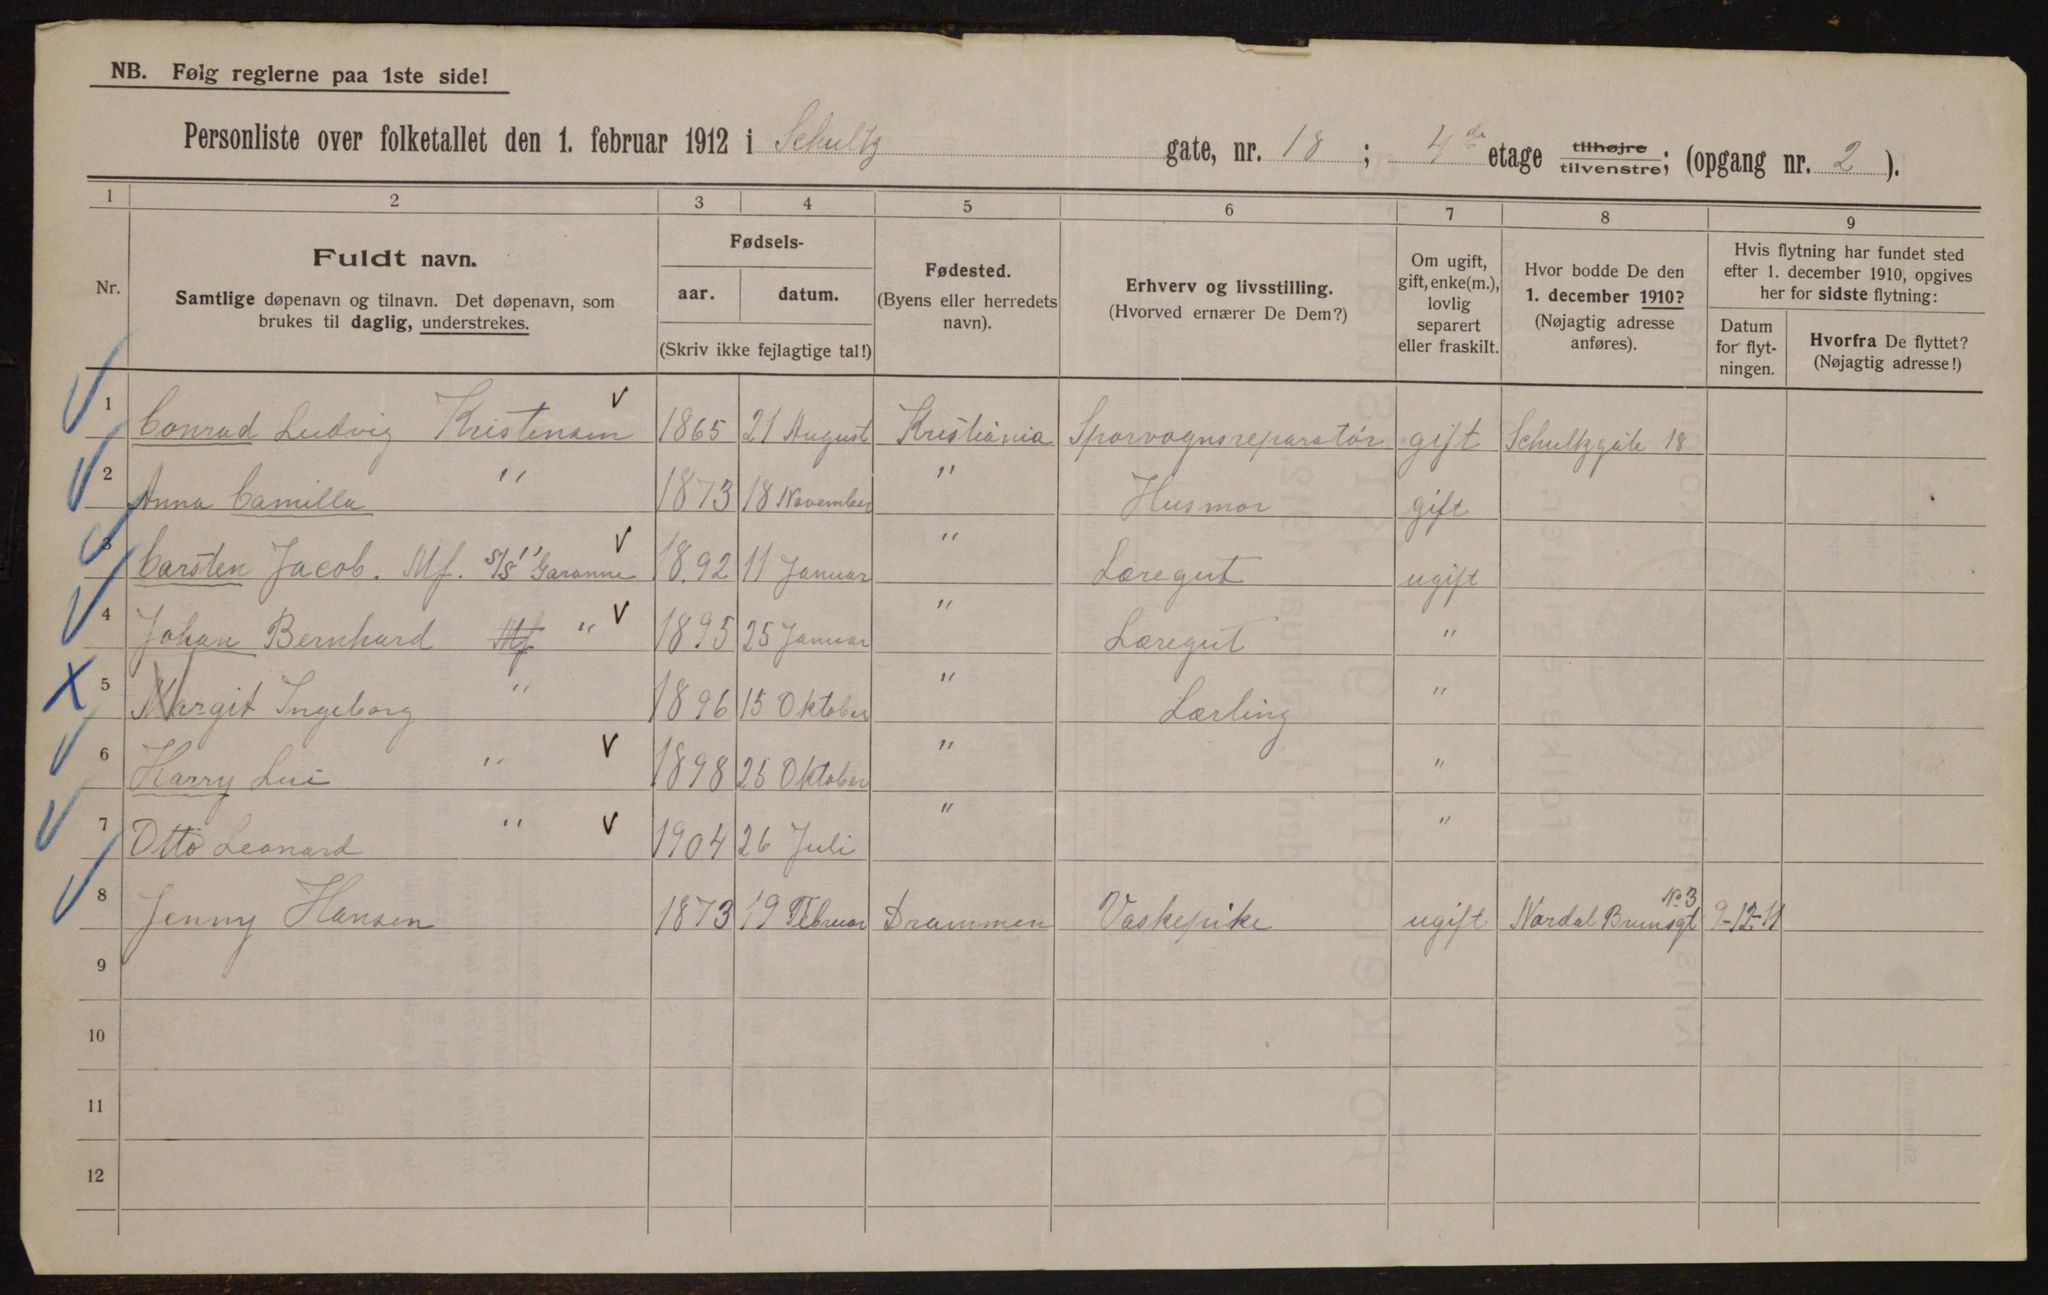 NB. Følg reglerne paa 1ste side!
Personliste over folketallet den 1. februar 1912 i Schultz gate, nr. 18 ; 4de etage tilhøjre/tilvenstre; (opgang nr. 2 ).
1 2 3 4 5 6 7 8 9
Nr.
Fuldt navn.
Samtlige døpenavn og tilnavn. Det døpenavn, som
brukes til daglig, understrekes.
Fødsels-
aar. datum.
(Skriv ikke fejlagtige tal!)
Fødested.
(Byens eller herredets
navn).
Erhverv og livsstilling.
(Hvorved ernærer De Dem?)
Om ugift,
gift, enke(m.),
lovlig
separert
eller fraskilt.
Hvor bodde De den
1. december 1910?
(Nøjagtig adresse
anføres).
Hvis flytning har fundet sted
efter 1. december 1910, opgives
her for sidste flytning:
Datum
for flyt-
ningen.
Hvorfra De flyttet?
(Nøjagtig adresse!)
1 Conrad Ludvig Kristensen 1865 21 August Kristiania Sporvognsreparatør gift Schultzgate 18
2 Anna Camilla " 1873 18 November " Husmor gift
3 Carsten Jacob. Mf. S/S " Garonne 1892 11 Januar " Læregut ugift
4 Johan Bernhard Mf " 1895 25 Januar " Læregut "
5 Margit Ingeborg " 1896 15 Oktober " Lærling "
6 Harry Lui " 1898 25 Oktober " "
7 Otto Leonard " 1904 26 Juli " "
8 Jenny Hansen 1873 19 Februar Drammen Vaskepike ugift Nordal Brunsgt No 3 9-12-11
9
10
11
12